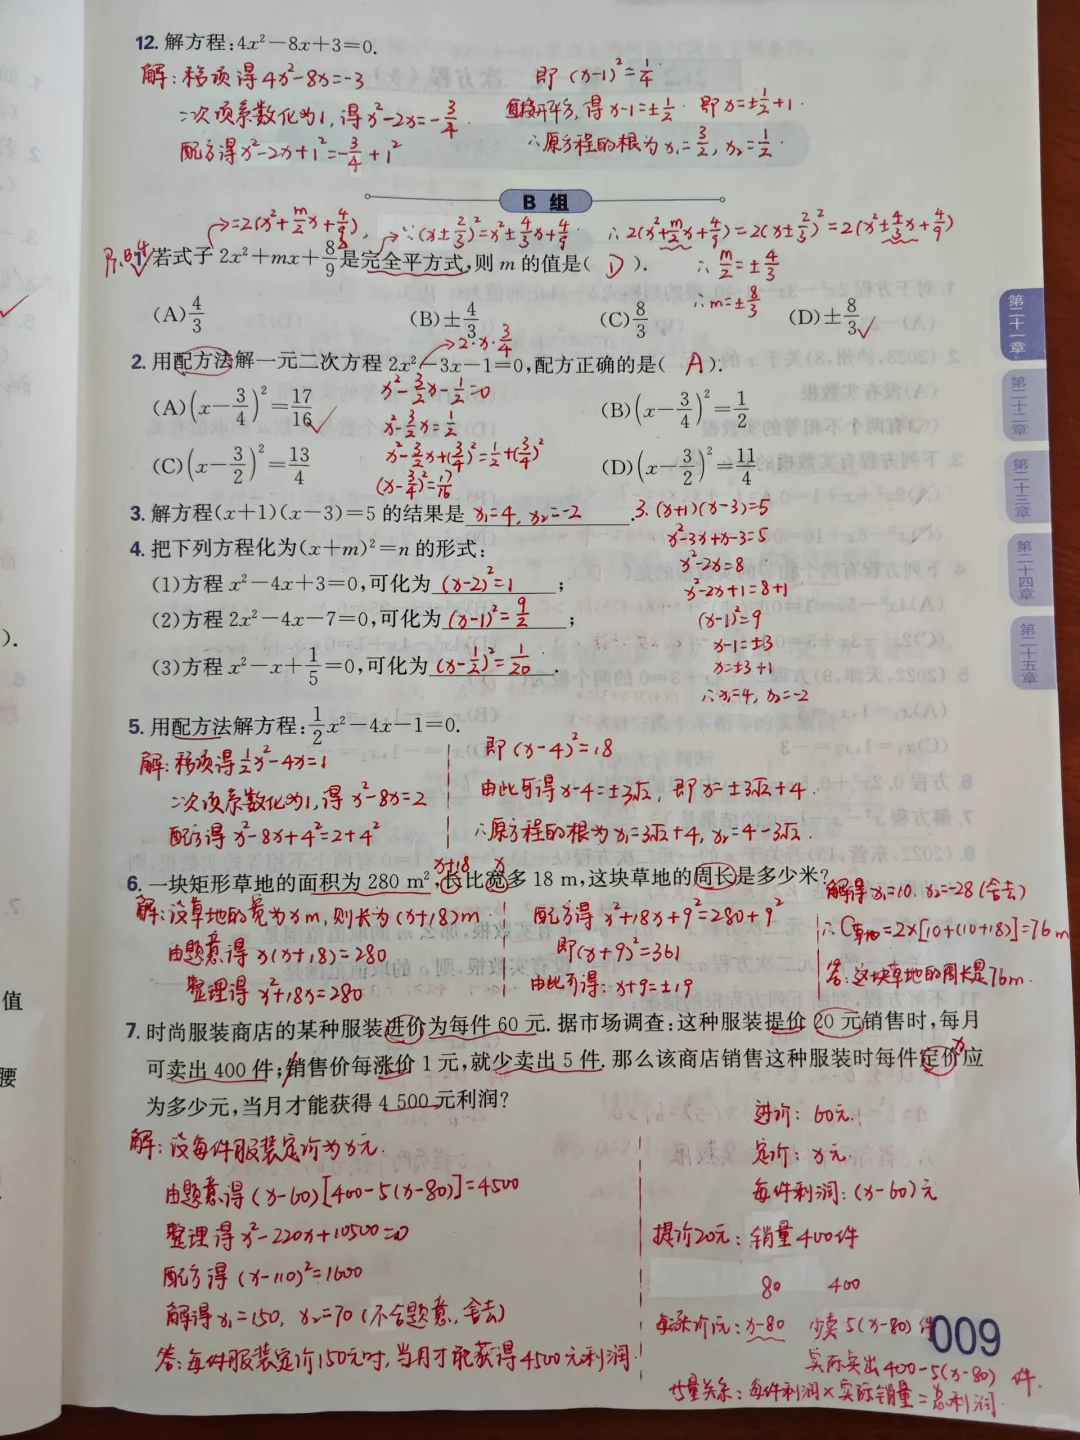 12. 解方程:4x²-8x+3=0.
解:移项得4x²-8x=-3
二次项系数化为1,得x²-2x=-3/4
配方得x²-2x+1²=-3/4+1²
即(x-1)²=1/4
直接开平方,得x-1=±1/2. 即x=±1/2+1.
∴原方程的根为x₁=3/2, x₂=1/2.
B 组
=2(x²+m/2x+4/9), ∵(x±2/3)²=x²±4/3x+4/9 ∴2(x²+m/2x+4/9)=2(x±2/3)²=2(x²±4/3x+4/9)
1. 若式子2x²+mx+8/9是完全平方式,则m的值是( D ).
∴m/2=±4/3
∴m=±8/3
(A)4/3 (B)±4/3 (C)8/3 (D)±8/3
2·x·3/4
2. 用配方法解一元二次方程2x²-3x-1=0,配方正确的是( A ).
(A)(x-3/4)²=17/16 (B)(x-3/4)²=1/2
(C)(x-3/2)²=13/4 (D)(x-3/2)²=11/4
x²-3/2x-1/2=0
x²-3/2x=1/2
x²-3/2x+(3/4)²=1/2+(3/4)²
(x-3/4)²=17/16
3. 解方程(x+1)(x-3)=5的结果是 x₁=4, x₂=-2 .
3. (x+1)(x-3)=5
x²-3x+x-3=5
x²-2x=8
x²-2x+1=8+1
(x-1)²=9
x-1=±3
x=±3+1
∴x₁=4, x₂=-2
4. 把下列方程化为(x+m)²=n的形式:
(1)方程x²-4x+3=0,可化为 (x-2)²=1 ;
(2)方程2x²-4x-7=0,可化为 (x-1)²=9/2 ;
(3)方程x²-x+1/5=0,可化为 (x-1/2)²=1/20 .
5. 用配方法解方程:1/2x²-4x-1=0.
解:移项得1/2x²-4x=1
二次项系数化为1,得x²-8x=2
配方得x²-8x+4²=2+4²
即(x-4)²=18
由此可得x-4=±3√2, 即x=±3√2+4.
∴原方程的根为x₁=3√2+4, x₂=4-3√2.
x+18 x
6. 一块矩形草地的面积为280 m²,长比宽多18 m,这块草地的周长是多少米?
解:设草地的宽为x m,则长为(x+18)m.
由题意得x(x+18)=280
整理得x²+18x=280
配方得x²+18x+9²=280+9²
即(x+9)²=361
由此可得:x+9=±19
解得x₁=10. x₂=-28(舍去)
∴C草地=2×[10+(10+18)]=76m
答:这块草地的周长是76m.
7. 时尚服装商店的某种服装进价为每件60元.据市场调查:这种服装提价20元销售时,每月
可卖出400件;销售价每涨价1元,就少卖出5件.那么该商店销售这种服装时每件定价应
x
为多少元,当月才能获得4 500元利润?
解:设每件服装定价为x元.
由题意得(x-60)[400-5(x-80)]=4500
整理得x²-220x+10500=0
配方得(x-110)²=1600
解得x₁=150, x₂=70(不合题意,舍去)
答:每件服装定价150元时,当月才能获得4500元利润.
进价:60元.
定价:x元.
每件利润:(x-60)元
提价20元:销量400件
80 400
每涨价1元:x-80 少卖5(x-80)件
实际卖出400-5(x-80)件.
等量关系:每件利润×实际销量=总利润.
第二十一章
第二十二章
第二十三章
第二十四章
第二十五章
009
).
值
腰